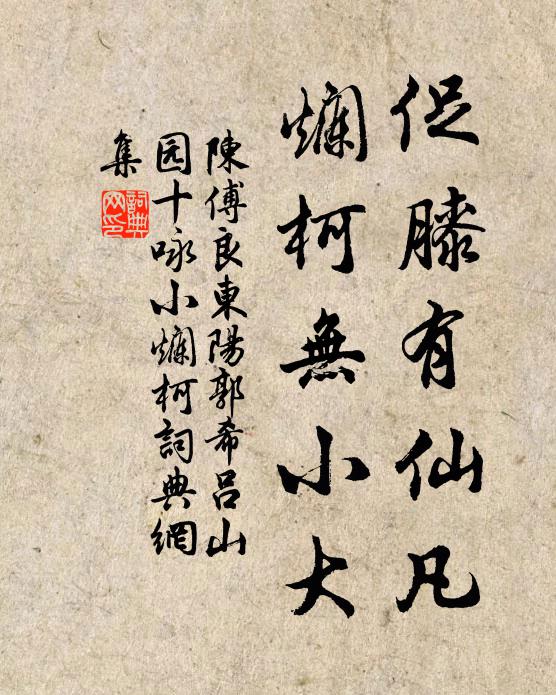 促膝有仙凡
爛柯無小大
陳傅良東陽郭希呂山
园十咏小爛柯詞典網
集
詞典
网印